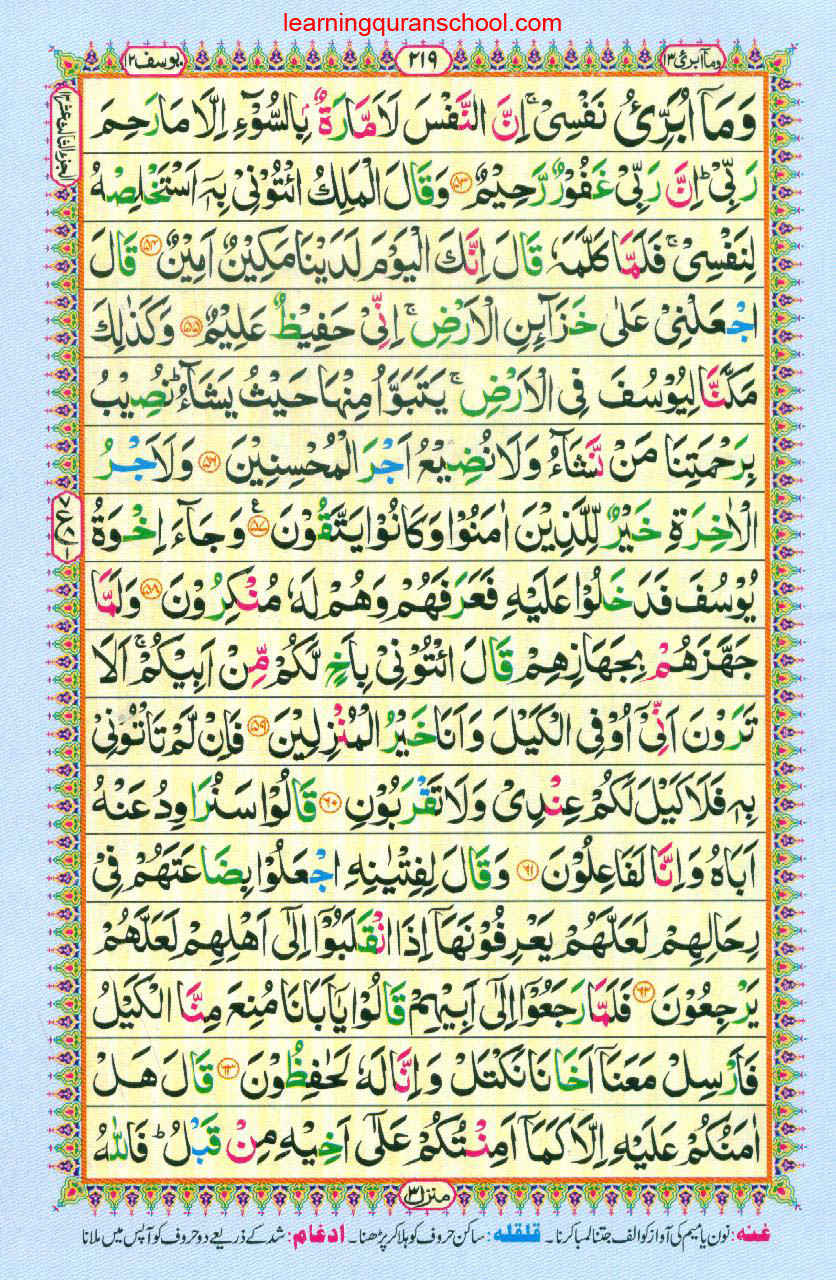 learningquranschool.com
وما ابرئ ١٣
٢١٩
يوسف ١٢
الجزء الثالث عشر ١٣
وَمَاۤ اُبَرِّئُ نَفْسِیْ ۚ اِنَّ النَّفْسَ لَاَمَّارَةٌۢ بِالسُّوْٓءِ اِلَّا مَا رَحِمَ
رَبِّیْ ؕ اِنَّ رَبِّیْ غَفُوْرٌ رَّحِیْمٌ ﴿۵۳﴾ وَقَالَ الْمَلِكُ ائْتُوْنِیْ بِهٖۤ اَسْتَخْلِصْهُ
لِنَفْسِیْ ۚ فَلَمَّا كَلَّمَهٗ قَالَ اِنَّكَ الْیَوْمَ لَدَیْنَا مَكِیْنٌ اَمِیْنٌ ﴿۵۴﴾ قَالَ
اجْعَلْنِیْ عَلٰی خَزَآىِٕنِ الْاَرْضِ ۚ اِنِّیْ حَفِیْظٌ عَلِیْمٌ ﴿۵۵﴾ وَكَذٰلِكَ
مَكَّنَّا لِیُوْسُفَ فِی الْاَرْضِ ۚ یَتَبَوَّاُ مِنْهَا حَیْثُ یَشَآءُ ؕ نُصِیْبُ
بِرَحْمَتِنَا مَنْ نَّشَآءُ وَلَا نُضِیْعُ اَجْرَ الْمُحْسِنِیْنَ ﴿۵۶﴾ وَلَاَجْرُ
الْاٰخِرَةِ خَیْرٌ لِّلَّذِیْنَ اٰمَنُوْا وَكَانُوْا یَتَّقُوْنَ ﴿۵۷﴾ ع وَجَآءَ اِخْوَةُ
یُوْسُفَ فَدَخَلُوْا عَلَیْهِ فَعَرَفَهُمْ وَهُمْ لَهٗ مُنْكِرُوْنَ ﴿۵۸﴾ وَلَمَّا
جَهَّزَهُمْ بِجَهَازِهِمْ قَالَ ائْتُوْنِیْ بِاَخٍ لَّكُمْ مِّنْ اَبِیْكُمْ ۚ اَلَا
تَرَوْنَ اَنِّیْۤ اُوْفِی الْكَیْلَ وَاَنَا خَیْرُ الْمُنْزِلِیْنَ ﴿۵۹﴾ فَاِنْ لَّمْ تَاْتُوْنِیْ
بِهٖ فَلَا كَیْلَ لَكُمْ عِنْدِیْ وَلَا تَقْرَبُوْنِ ﴿۶۰﴾ قَالُوْا سَنُرَاوِدُ عَنْهُ
اَبَاهُ وَاِنَّا لَفَاعِلُوْنَ ﴿۶۱﴾ وَقَالَ لِفِتْیٰنِهِ اجْعَلُوْا بِضَاعَتَهُمْ فِیْ
رِحَالِهِمْ لَعَلَّهُمْ یَعْرِفُوْنَهَاۤ اِذَا انْقَلَبُوْۤا اِلٰۤی اَهْلِهِمْ لَعَلَّهُمْ
یَرْجِعُوْنَ ﴿۶۲﴾ فَلَمَّا رَجَعُوْۤا اِلٰۤی اَبِیْهِمْ قَالُوْا یٰۤاَبَانَا مُنِعَ مِنَّا الْكَیْلُ
فَاَرْسِلْ مَعَنَاۤ اَخَانَا نَكْتَلْ وَاِنَّا لَهٗ لَحٰفِظُوْنَ ﴿۶۳﴾ قَالَ هَلْ
اٰمَنُكُمْ عَلَیْهِ اِلَّا كَمَاۤ اَمِنْتُكُمْ عَلٰۤی اَخِیْهِ مِنْ قَبْلُ ؕ فَاللّٰهُ
منزل ٣
غنه: نون یا میم کی آواز کو الف جتنا لمبا کرنا۔ قلقله: ساکن حروف کو ہلا کر پڑھنا۔ ادغام: شد کے ذریعے دو حروف کو آپس میں ملانا